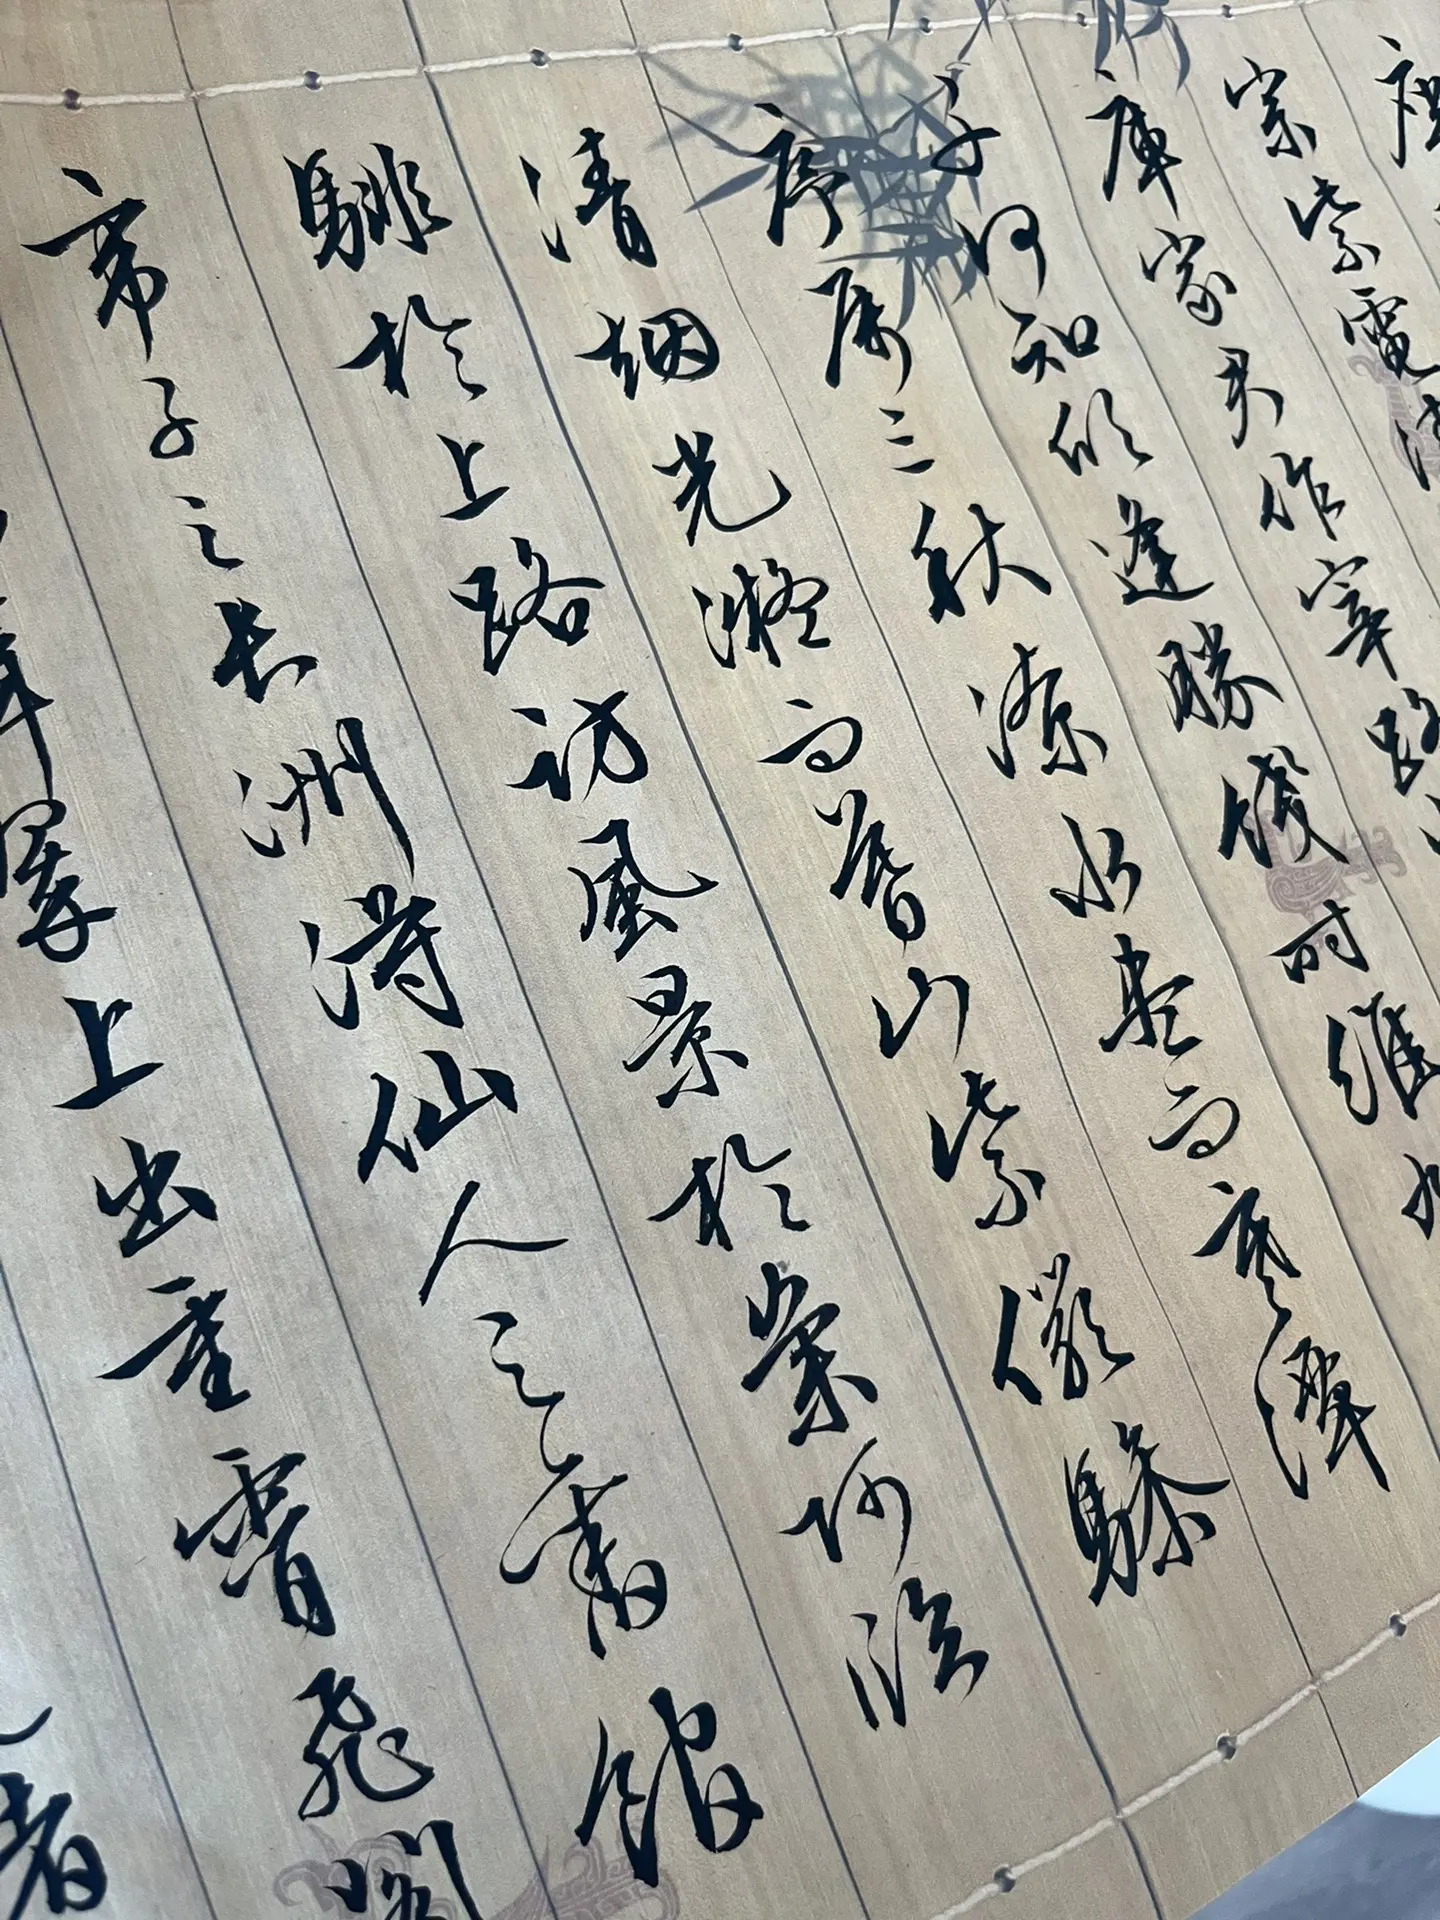 宗紫電清
庫家君作宰路
子何知躬逢勝餞時維九
序屬三秋潦水盡而寒潭
清烟光凝而暮山紫儼驂
騑於上路訪風景於崇阿臨
帝子之長洲得仙人之舊館
翠上出重霄飛閣